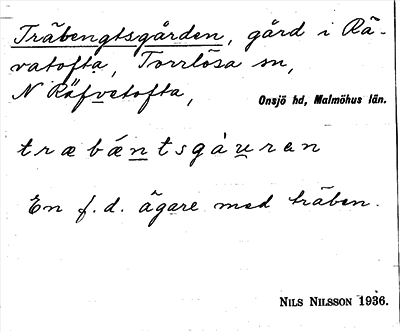 Träbengtsgården, gård i Rä-
vatofta, Torrlösa sn,
N Räfvetofta, Onsjö hd, Malmöhus län.
træbǽntsgȧuren
En f.d. ägare med träben.
NILS NILSSON 1936.